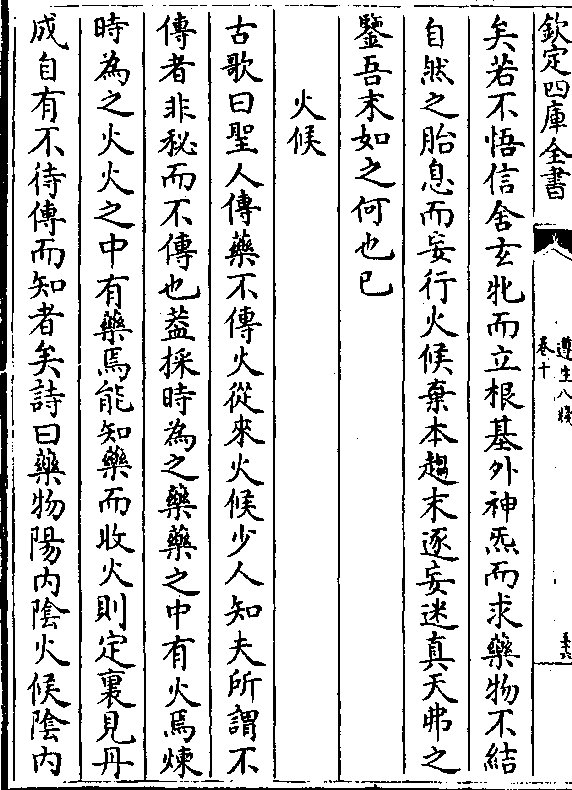 欽定四庫全書
遵生八牋
卷十
矣若不悟信舍玄牝而立根基外神炁而求藥物不結
自然之胎息而妄行火候棄本趨末逐妄迷真天弗之
鑒吾末如之何也已
火候
古歌曰聖人傳藥不傳火從來火候少人知夫所謂不
傳者非秘而不傳也葢採時為之藥藥之中有火焉煉
時為之火火之中有藥焉能知藥而收火則定裏見丹
成自有不待傳而知者矣詩曰藥物陽内陰火候陰内